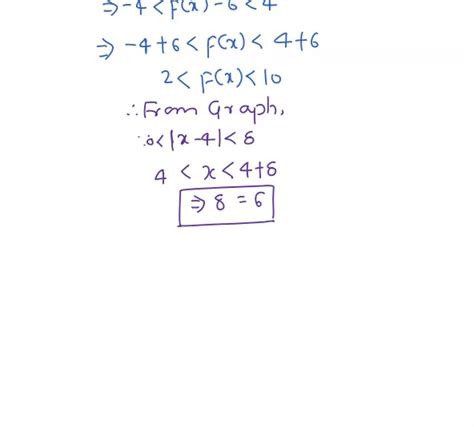 ⇒ -4 < f(x) - 6 < 4
⇒ -4+6 < f(x) < 4+6
2 < f(x) < 10
∴ From Graph,
∵ 0 < |x-4| < δ
4 < x < 4+δ
⇒ δ = 6